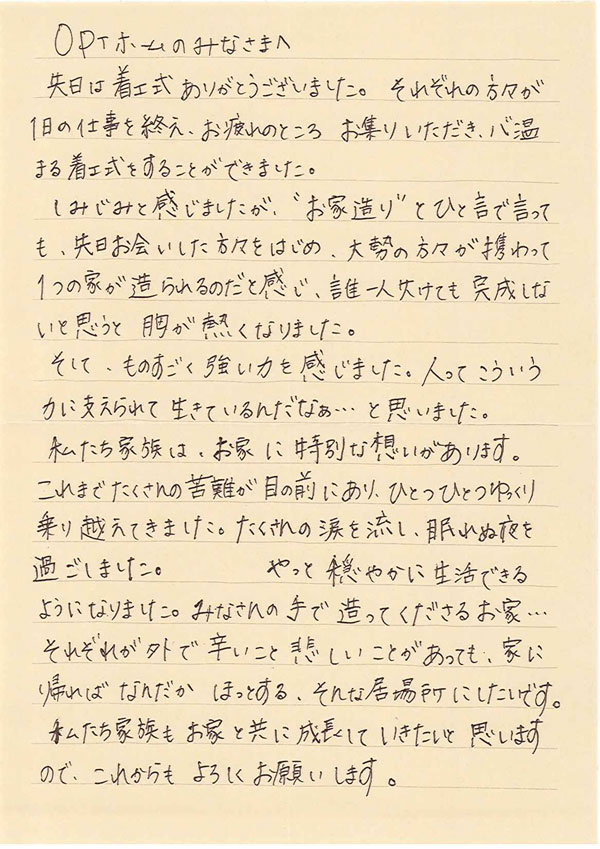 OPTホームのみなさまへ
先日は着工式ありがとうございました。それぞれの方々が
1日の仕事を終え、お疲れのところ お集りいただき、心温
まる着工式をすることができました。
しみじみと感じましたが、“お家造り”とひと言で言って
も、先日お会いした方々をはじめ、大勢の方々が携わって
1つの家が造られるのだと感じ、誰一人欠けても完成しな
いと思うと 胸が熱くなりました。
そして、ものすごく強い力を感じました。人ってこういう
力に支えられて生きているんだなぁ…と思いました。
私たち家族は、お家に特別な想いがあります。
これまでたくさんの苦難が目の前にあり、ひとつひとつゆっくり
乗り越えてきました。たくさんの涙を流し、眠れぬ夜を
過ごしました。 やっと穏やかに生活できる
ようになりました。みなさんの手で造ってくださるお家…
それぞれが外で辛いこと悲しいことがあっても、家に
帰ればなんだか ほっとする、そんな居場所にしたいです。
私たち家族もお家と共に成長していきたいと思います
ので、これからもよろしくお願いします。